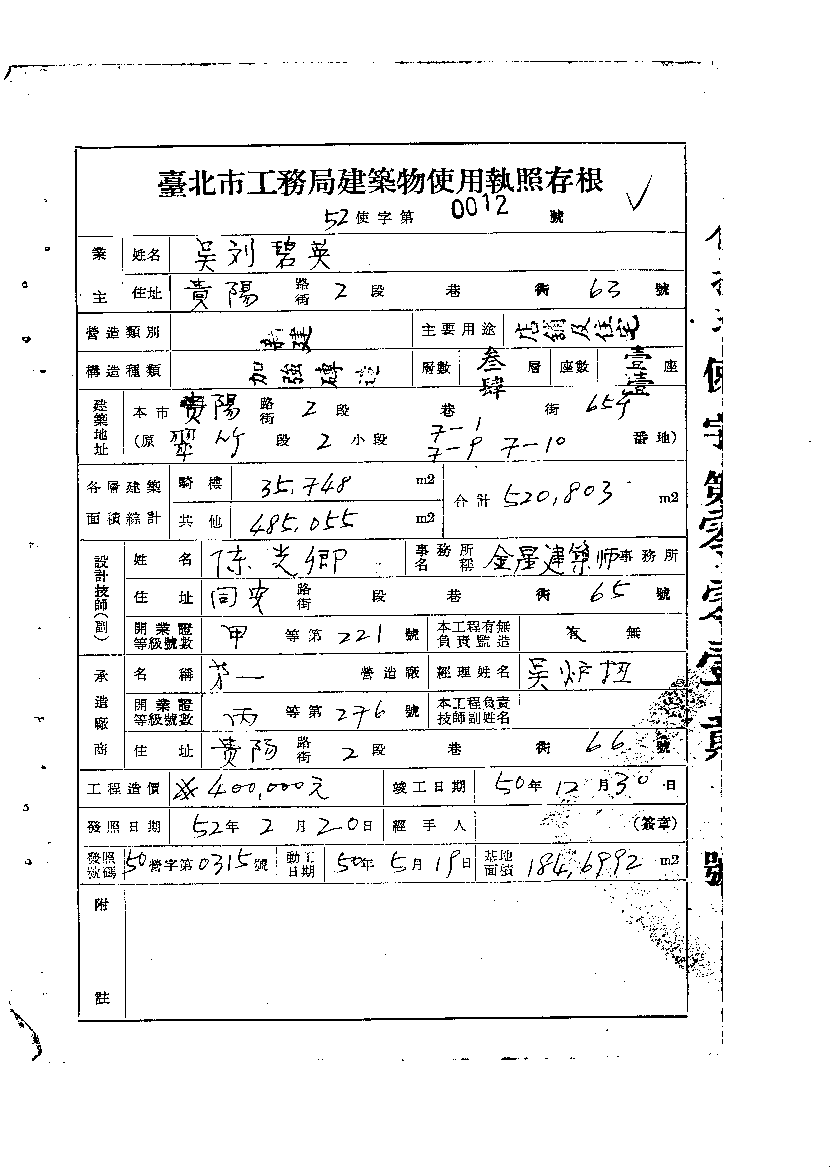 臺北市工務局建築物使用執照存根
52使字第 0012 號
業主 姓名 吳刘碧英
住址 貴陽 路街 2 段 巷 街 63 號
營造類別 新建 主要用途 店鋪及住宅
構造種類 加強磚造 層數 叁 肆 層 座數 壹 壹 座
建築地址 本市 貴陽 路街 2 段 巷 街
(原 翠竹 段 2 小段 7-1 7-9 7-10 番地)
各層建築面積綜計 騎樓 35,748 m2 合計 520,803 m2
其他 485,055 m2
設計技師(副) 姓名 陳光卿 事務所名稱 金星建築师事務所
住址 同安 路街 段 巷 街 65 號
開業證等級號數 甲 等第 221 號 本工程有無負責監造 無
承造廠商 名稱 第一 營造廠 經理姓名 吳
開業證等級號數 丙 等第 276 號 本工程負責技師副姓名
住址 貴陽 路街 2 段 巷 街 66 號
工程造價 400,000元 竣工日期 50年 12 月 30 日
發照日期 52年 2 月 20日 經手人 (簽章)
發照號碼 50營字第0315號 動工日期 50年 5月 19日 基地面積 184,6992 m2
附註
使字第零零壹貳號